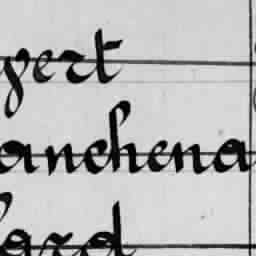 pert
anchena
ard